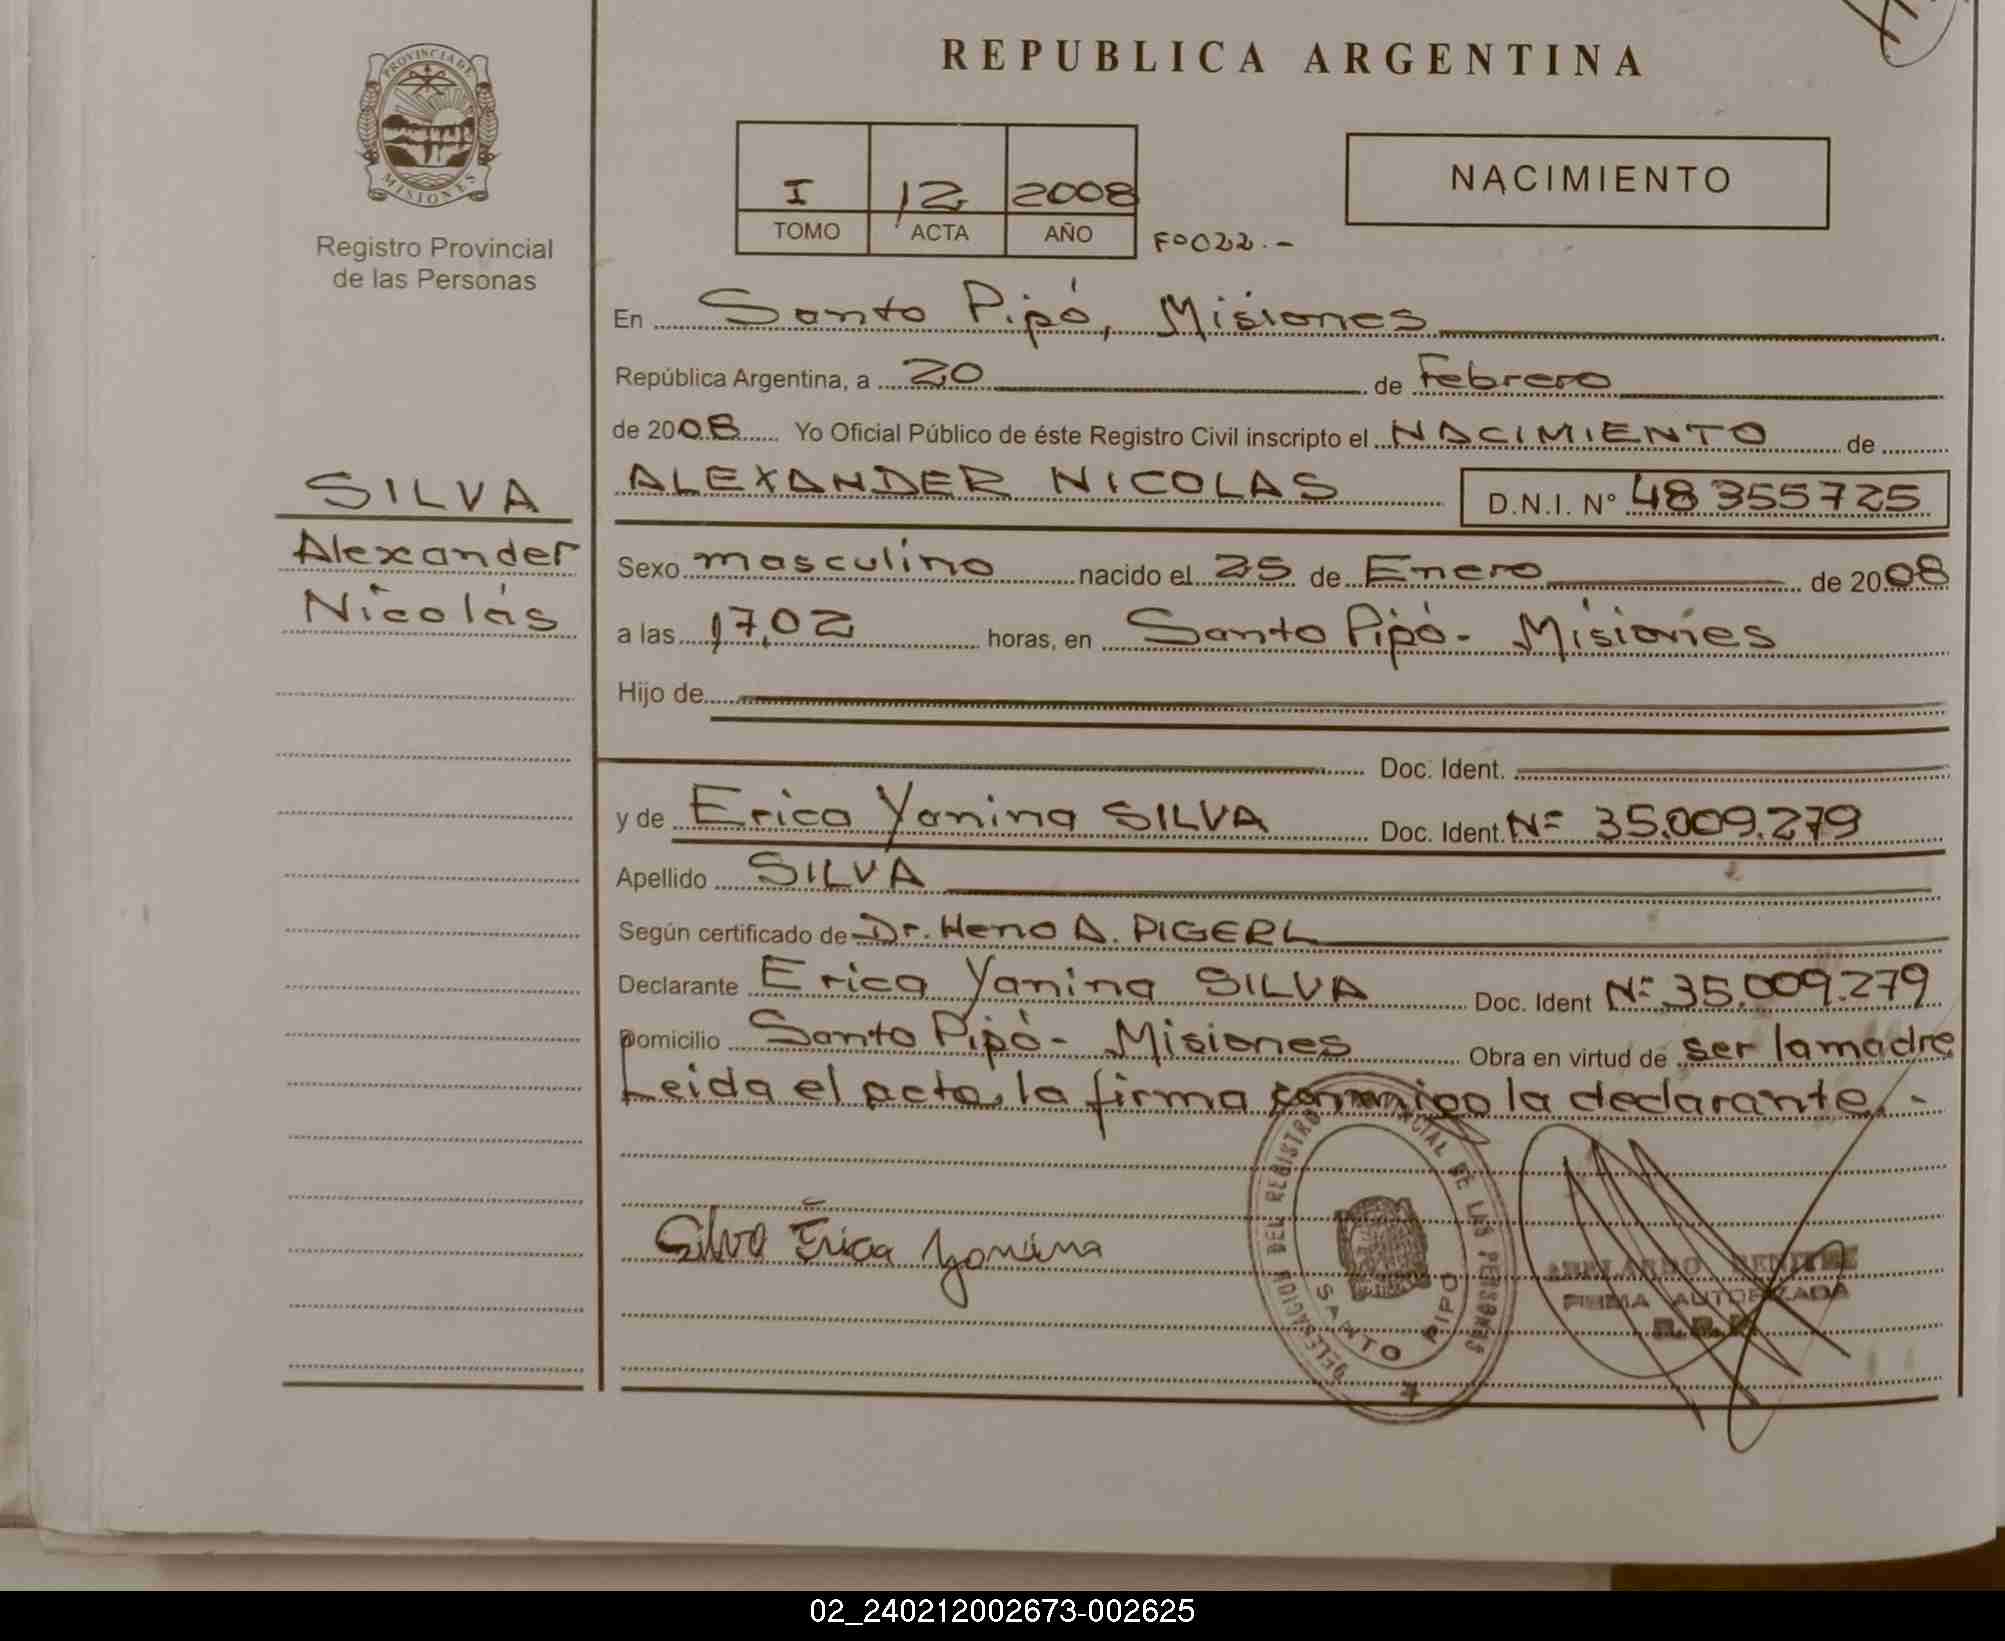 REPUBLICA ARGENTINA
PROVINCIA DE MISIONES
Registro Provincial
de las Personas
I 12 2008
TOMO ACTA AÑO Fº022.-
NACIMIENTO
En Santo Pipó, Misiones
República Argentina, a 20 de Febrero
de 2008 Yo Oficial Público de éste Registro Civil inscripto el NACIMIENTO de
SILVA
Alexander
Nicolás
ALEXANDER NICOLAS D.N.I. Nº 48355725
Sexo masculino nacido el 25 de Enero de 2008
a las 17,02 horas, en Santo Pipó- Misiones
Hijo de
Doc. Ident.
y de Erica Yanina SILVA Doc. Ident. Nº 35.009.279
Apellido SILVA
Según certificado de Dr. Heno A. PIGERL
Declarante Erica Yanina SILVA Doc. Ident Nº 35.009.279
Domicilio Santo Pipó- Misiones Obra en virtud de ser la madre
Leida el acta, la firma conmigo la declarante.-
Silva Erica Yanina
DELEGACION DEL REGISTRO PROVINCIAL DE LAS PERSONAS
SANTO PIPO
ABELARDO BENITEZ
FIRMA AUTORIZADA
02_240212002673-002625